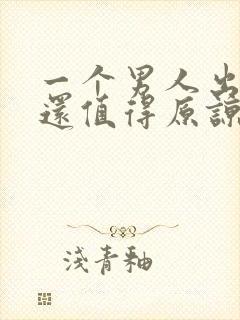 一个男人出
還值得原諒
淺青釉